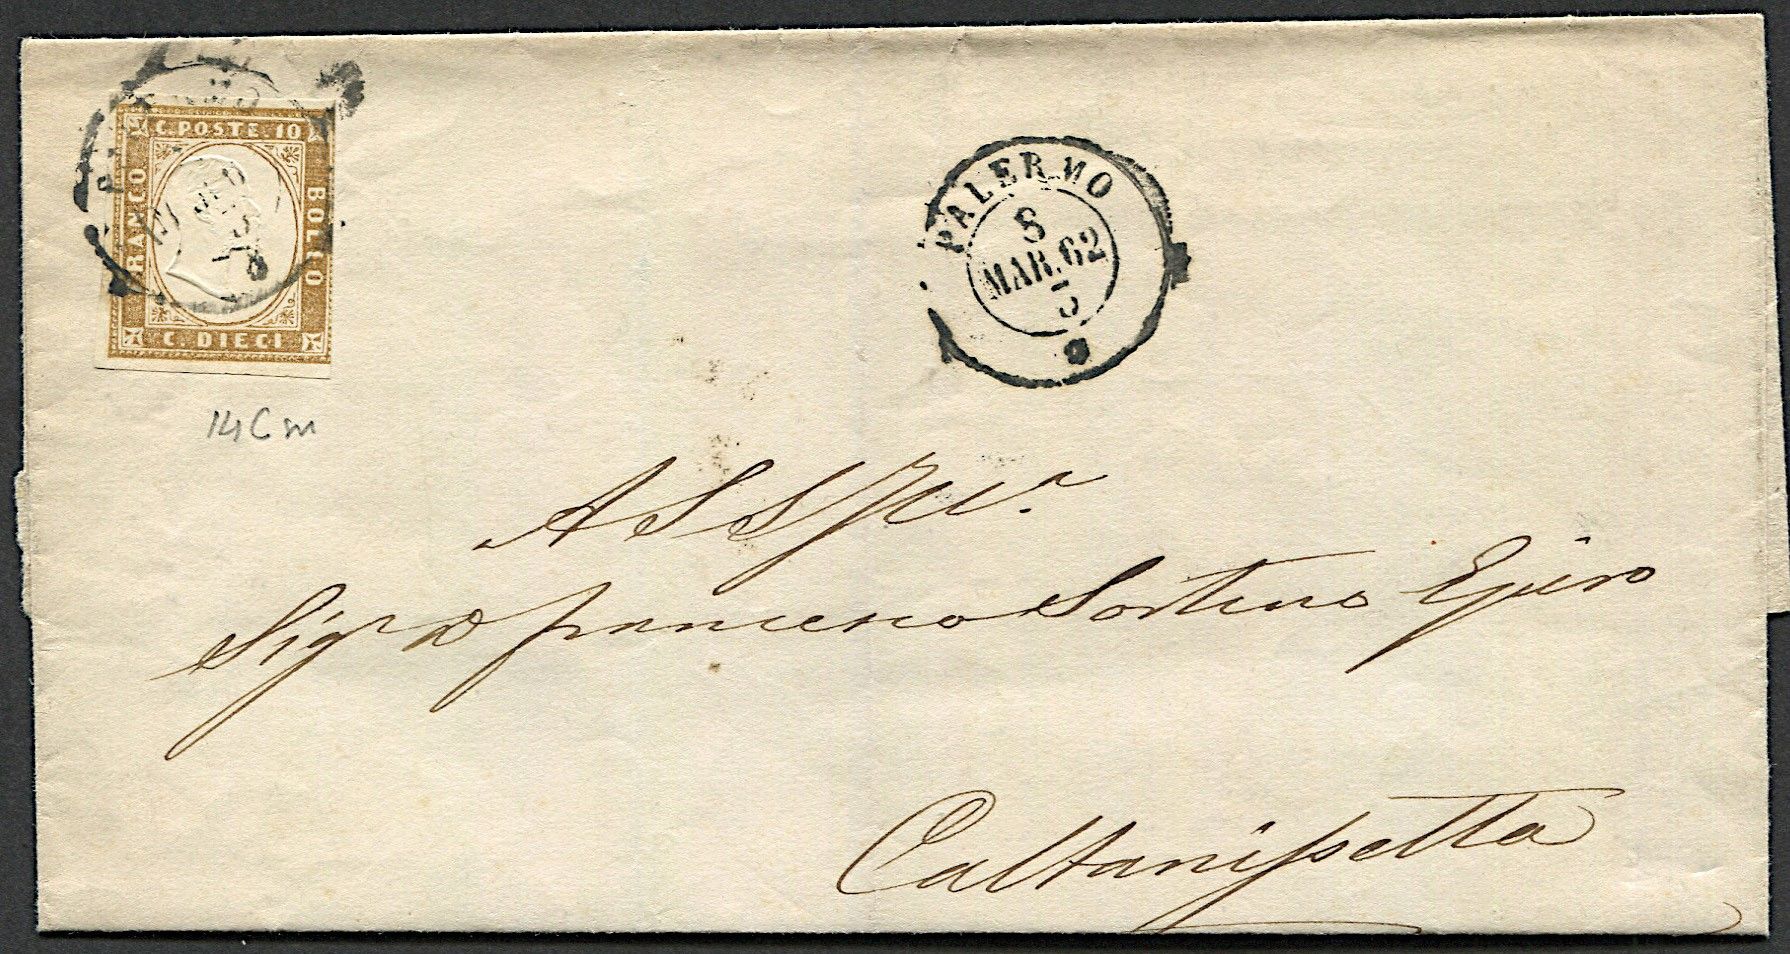 C. POSTE. 10
FRANCO
BOLLO
C. DIECI
PALERMO
8
MAR. 62
5
14 C m
Sig.r D Francesco Sortino
Caltanissetta